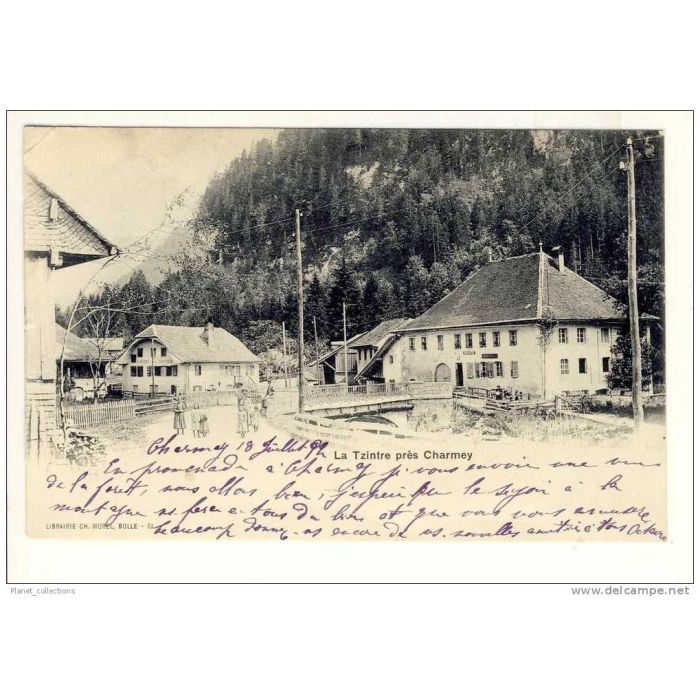 Charmey 18 Juillet
La Tzintre près Charmey
En promenade à Charmey je vous envoie une vue
de la forêt, nous allons bien, j'espère que le séjour à la
montagne fera à tous du bien et que vous vous amusere
LIBRAIRIE CH. MOREL, BULLE - 51
beaucoup donnez-ns encore de vs. nouvelles amitiés à tous
Planet_collections
http://www.delcampe.net